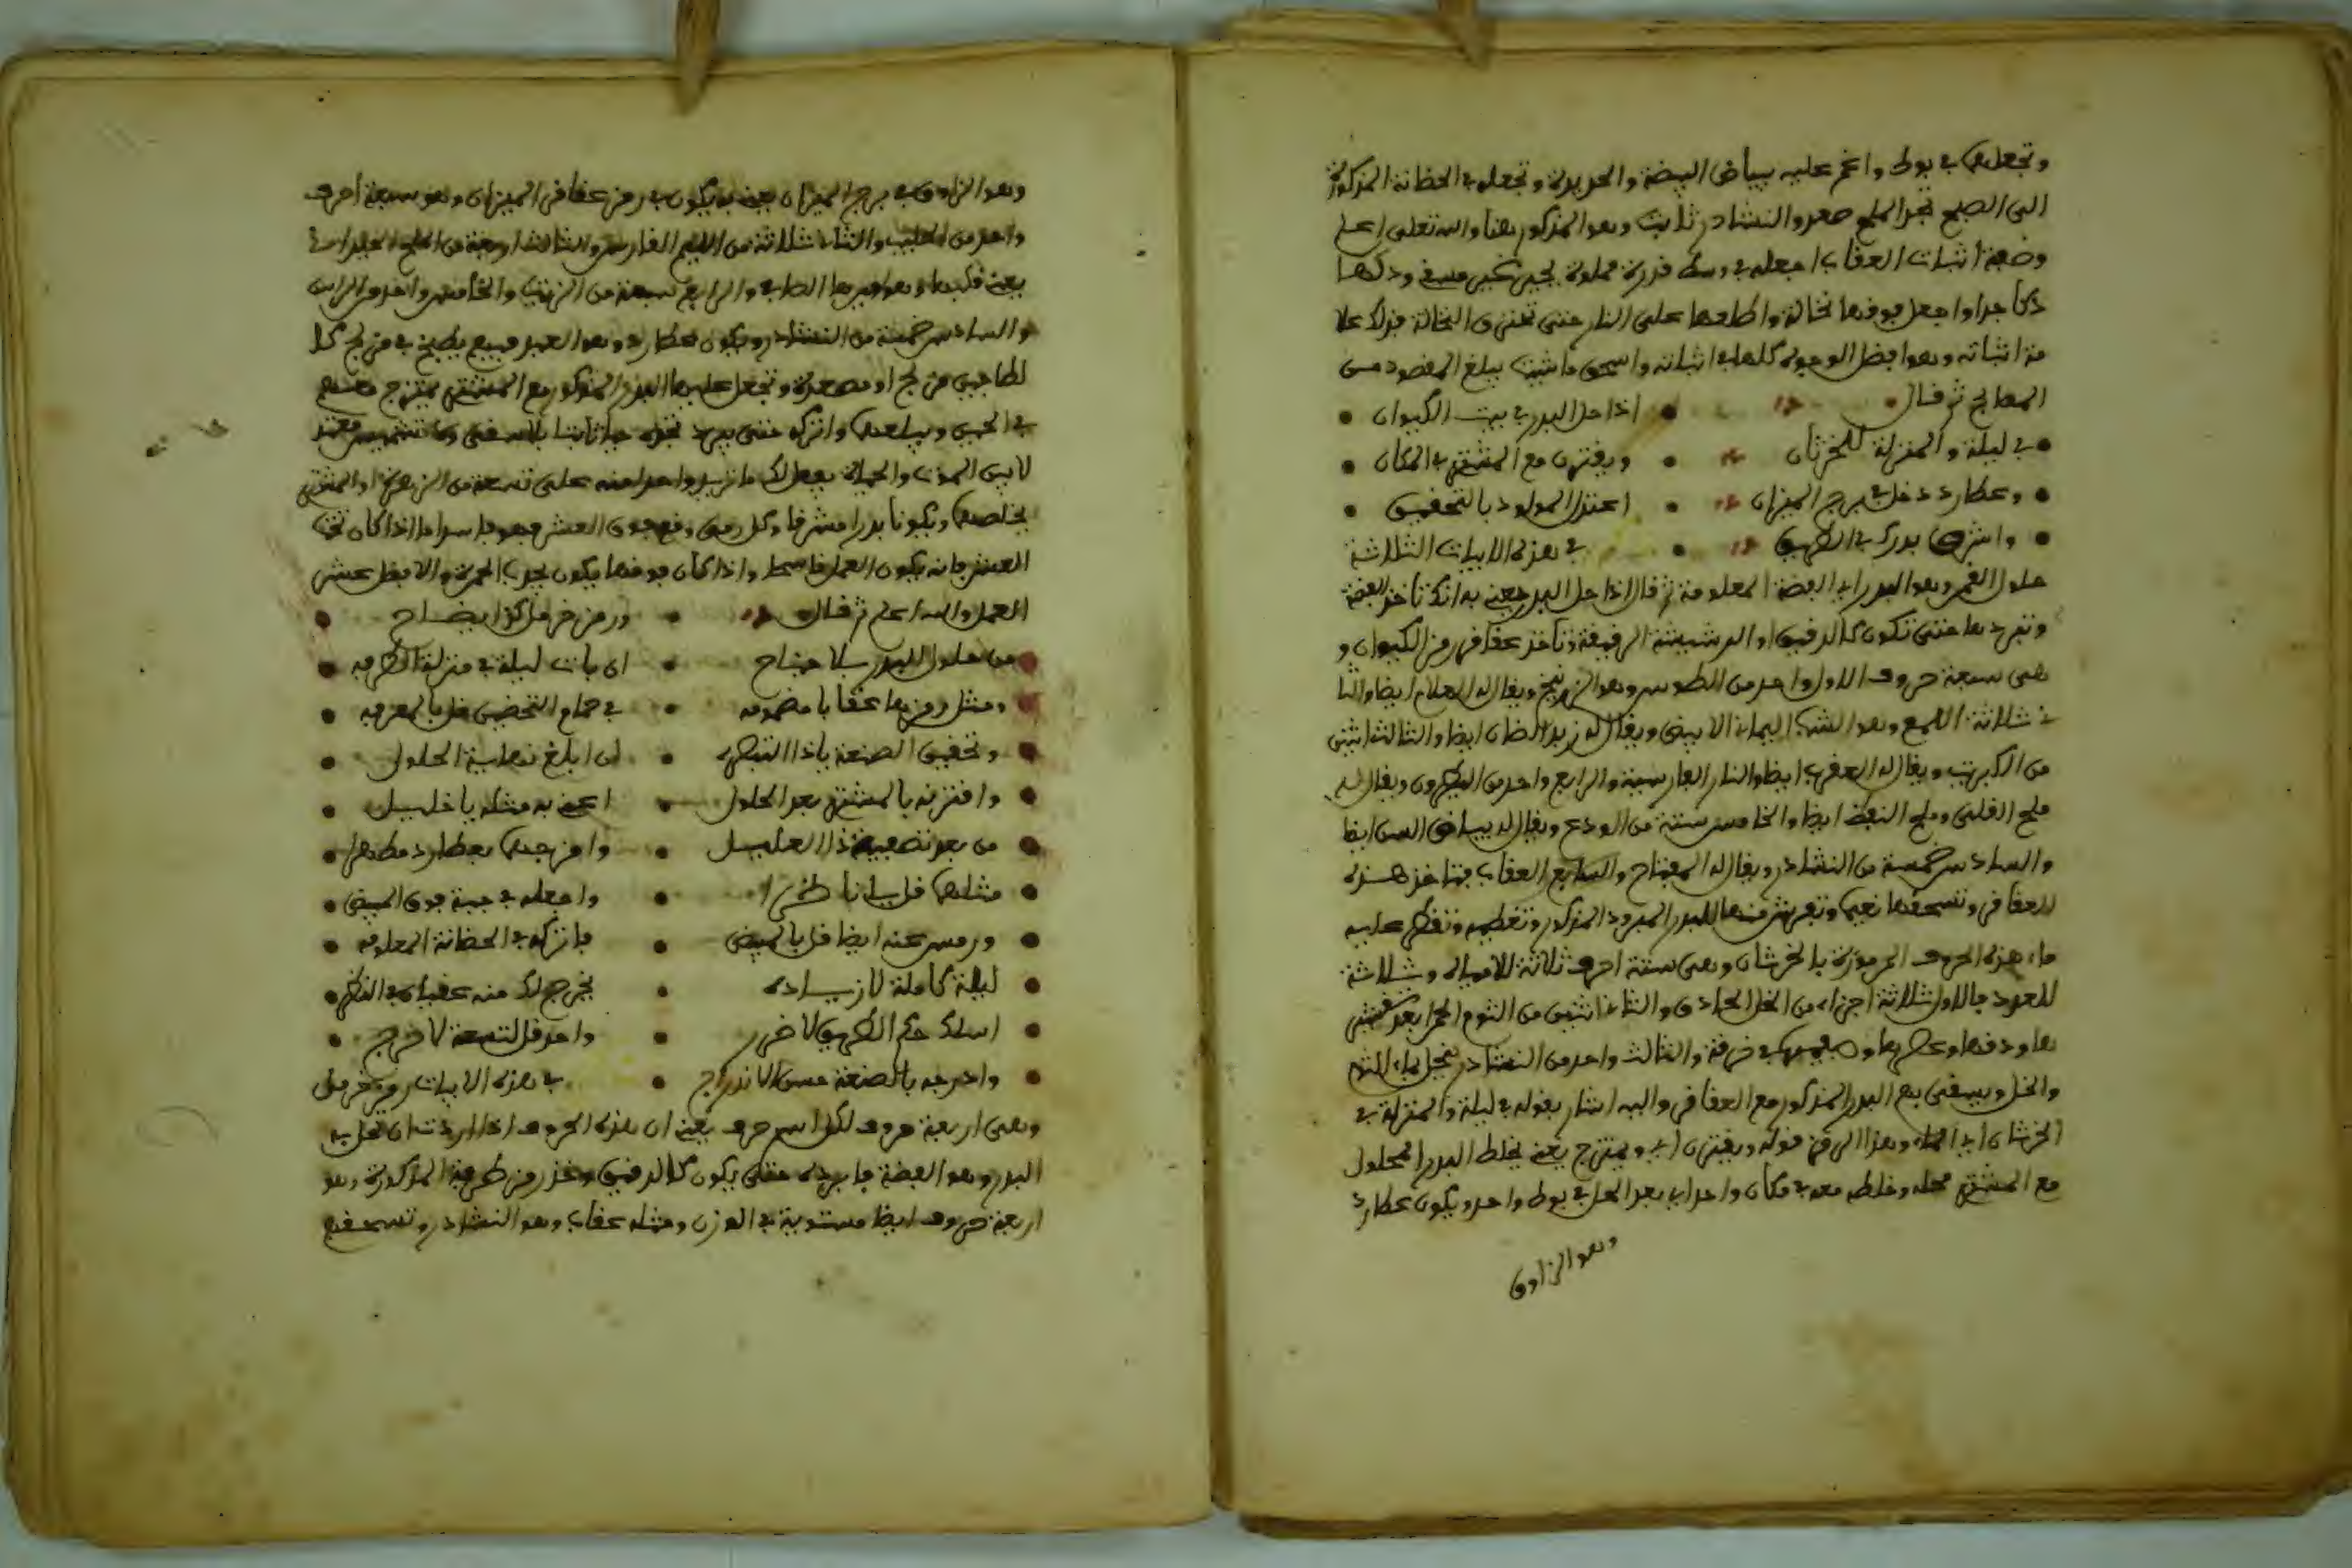 وتجعلهم في بوط واغم عليه ببياض البيضة والحديدة وتجعله في الحظانة المذكورة
الى الصبح تجد الملح صعد والنشادر ثابت وهو المذكور هنا والله تعلى اعلم
وصفة اثبات العقاب اجعله في وسط قدرة مملوة بجير غير مسقي ودكها
دكا جدا واجعل فوقها نخالة واطلعها على النار حتى تحترق النخالة فذلك علا
مة اثباته وهو افضل الوجوه كلها في اثباته واسحق ما شيت يبلغ المقصود من
المعالج ثم قال اذا حل البدر في بيت الكيوان
في ليلة والمنزلة للخرثان ويقترن مع المشتري في المكان
وعطارد دخل في برج الميزان اعتدل المولود بالتحقيق
واشرق بدرك في الطريق في هذه الابيات الثلاثة
حلول القمر وهو البدر اي الفضة المعلومة ثم قال اذا حل البدر يعني به انك تاخذ الفضة
وتبردها حتى تكون كالدقيق او الدشيشة الرقيقة وتاخذ عقاقر رمز الكيوان و
هي سبعة حروف الاول واحد من الطوس وهو الزرنيخ ويقال له العلم ايضا والثا
ني ثلاثة اللمع وهو الشب اليماني الابيض ويقال له زبد الضان ايضا والثالث اثنى
من الكبريت ويقال له العقرب ايضا والنار الفارسية والرابع واحد من النطرون ويقال له
ملح القلي وملح النفط ايضا والخامس ستة من الودع ويقال له بياض السن ايضا
والسادس خمسة من النشادر ويقال له المفتاح والسابع العقاب فتاخذ هذه
العقاقر وتسحقها نعيما وتفرش منها للبدر المبرود المذكور وتغطيه وتقطر عليه
ماء هذه الحروف المرموزة بالخرشان وهي ستة احرف ثلاثة للامياه وثلاثة
للعود فالاول ثلاثة اجزاء من الخل الحاذق والثاني اثنين من الثوم الحمر بعد
ها ودقها وعصرها في خرقة والثالث واحد من النشادر بماء الثوم
والخل ويسقى به البدر المذكور مع العقاقر واليه اشار بقوله في ليلة والمنزلة في
الخرشان اي الماء وهذا الى قوله ويقترن اي ويمتزج يعني يخلط البدر المحلول
مع المشتري محله وخلطه معه في مكان واحد اي بعد الحل في بوط واحد ويكون عطارد
وهو الزاوق
وهو الزاوق في برج الميزان يعني به يكون في رمز عقاقر الميزان وهو سبعة احرف
واحد من الحليب والثاني ثلاثة من الفارسي والثالث اربعة من الملح
يعني الصافي والرابع سبعة من الزيت والخامس واحد من الراب
والسادس خمسة من النشادر ويكون عطارد وهو العبد فيه يطبخ في مزلج كا
لطاجين مزلج او مصعدة وتجعل عليه البدر المذكور مع المشتري يمتزج معهم
في الحين ويبلعه واتركه حتى يبرد تجده حيا ثابتا
لا بين الموت والحياة يفعل لك ما تريد واحد منه على تسعة من الزهرة او المشتري
يخلصهم ويكونا بدرا مشرقا وكل رمز وقع فوق العشر فهو فاسد اما اذا كان تحت
العشر فانه يكون العمل فاسحا واذا كان فوقها يكون بحرب الحمرة والا فظل عشر
العمل والله اعلم ثم قال ورمز خرملك ايضاح
من حلول البدر بلا جناح ان بات ليلة في منزلة الطرفه
ومثل رمزها عقابا مضمومه في حمام التحضين قل بالمعرفه
وتحقيق الصنعة ياذا التبطره ان ابلغ نهاية الحلول
واقترنه بالمشتري بعد الحلول اعني به مثله يا خليل
من بعد تصعيد ذا العليل وامزجه بعطارد مطهرا
مثلهم قل يا ناظرا واجعله في جبة فوق المبيض
ورمس عنه ايضا قل بالمبيض فاتركه في الحظانة المعلومه
ليلة كاملة لا زياده يخرج لك منه عقيان في النظر
اسلك حكم الطريق لا ضرر واحد قل لتسعة لا حرج
واخرجه بالصنعة حسن الاندراج في هذه الابيات رمز خرمل
وهي اربعة حروف لكل اسم حرف يعني ان هذه الحروف اذا اردت ان تحل به
البدر وهو الفضة فابرده حتى يكون كالدقيق وخذ رمز طرفة المذكورة وهو
اربعة حروف ايضا مستوية في الوزن ومثله عقاب وهو النشادر وتسحقهم